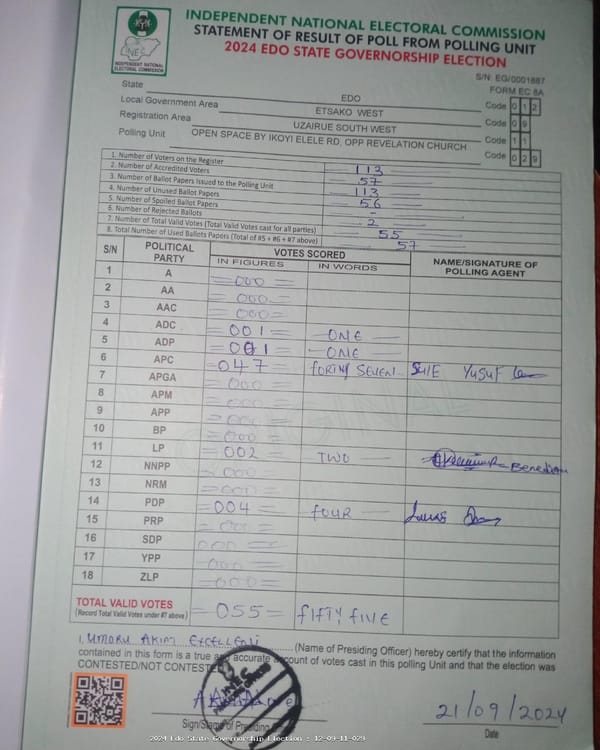 INDEPENDENT NATIONAL ELECTORAL COMMISSION
STATEMENT OF RESULT OF POLL FROM POLLING UNIT
2024 EDO STATE GOVERNORSHIP ELECTION
INEC
INDEPENDENT NATIONAL ELECTORAL COMMISSION
S/N: EG/0001887
FORM EC 8A
State EDO Code 0 1 2
Local Government Area ETSAKO WEST Code 0 9
Registration Area UZAIRUE SOUTH WEST Code 1 1
Polling Unit OPEN SPACE BY IKOYI ELELE RD, OPP REVELATION CHURCH Code 0 2 9
1. Number of Voters on the Register 113
2. Number of Accredited Voters 57
3. Number of Ballot Papers Issued to the Polling Unit 113
4. Number of Unused Ballot Papers 56
5. Number of Spoiled Ballot Papers -
6. Number of Rejected Ballots 2
7. Number of Total Valid Votes (Total Valid Votes cast for all parties) 55
8. Total Number of Used Ballots Papers (Total of #5 + #6 + #7 above) 57
S/N POLITICAL PARTY VOTES SCORED NAME/SIGNATURE OF POLLING AGENT
IN FIGURES IN WORDS
1 A 000
2 AA 000
3 AAC 000
4 ADC 001 ONE
5 ADP 001 ONE
6 APC 047 FORTY SEVEN YUSUF
7 APGA 000
8 APM 000
9 APP 000
10 BP 000
11 LP 002 TWO
12 NNPP 000
13 NRM 000
14 PDP 004 FOUR
15 PRP 000
16 SDP 000
17 YPP 000
18 ZLP 000
TOTAL VALID VOTES 055 FIFTY FIVE
(Record Total Valid Votes under #7 above)
I, UMORU AKIM EXCELLENT (Name of Presiding Officer) hereby certify that the information
contained in this form is a true and accurate account of votes cast in this polling Unit and that the election was
CONTESTED/NOT CONTESTED
Sign/Stamp of Presiding
21/09/2024
Date
2024 Edo State Governorship Election : 12-09-11-029